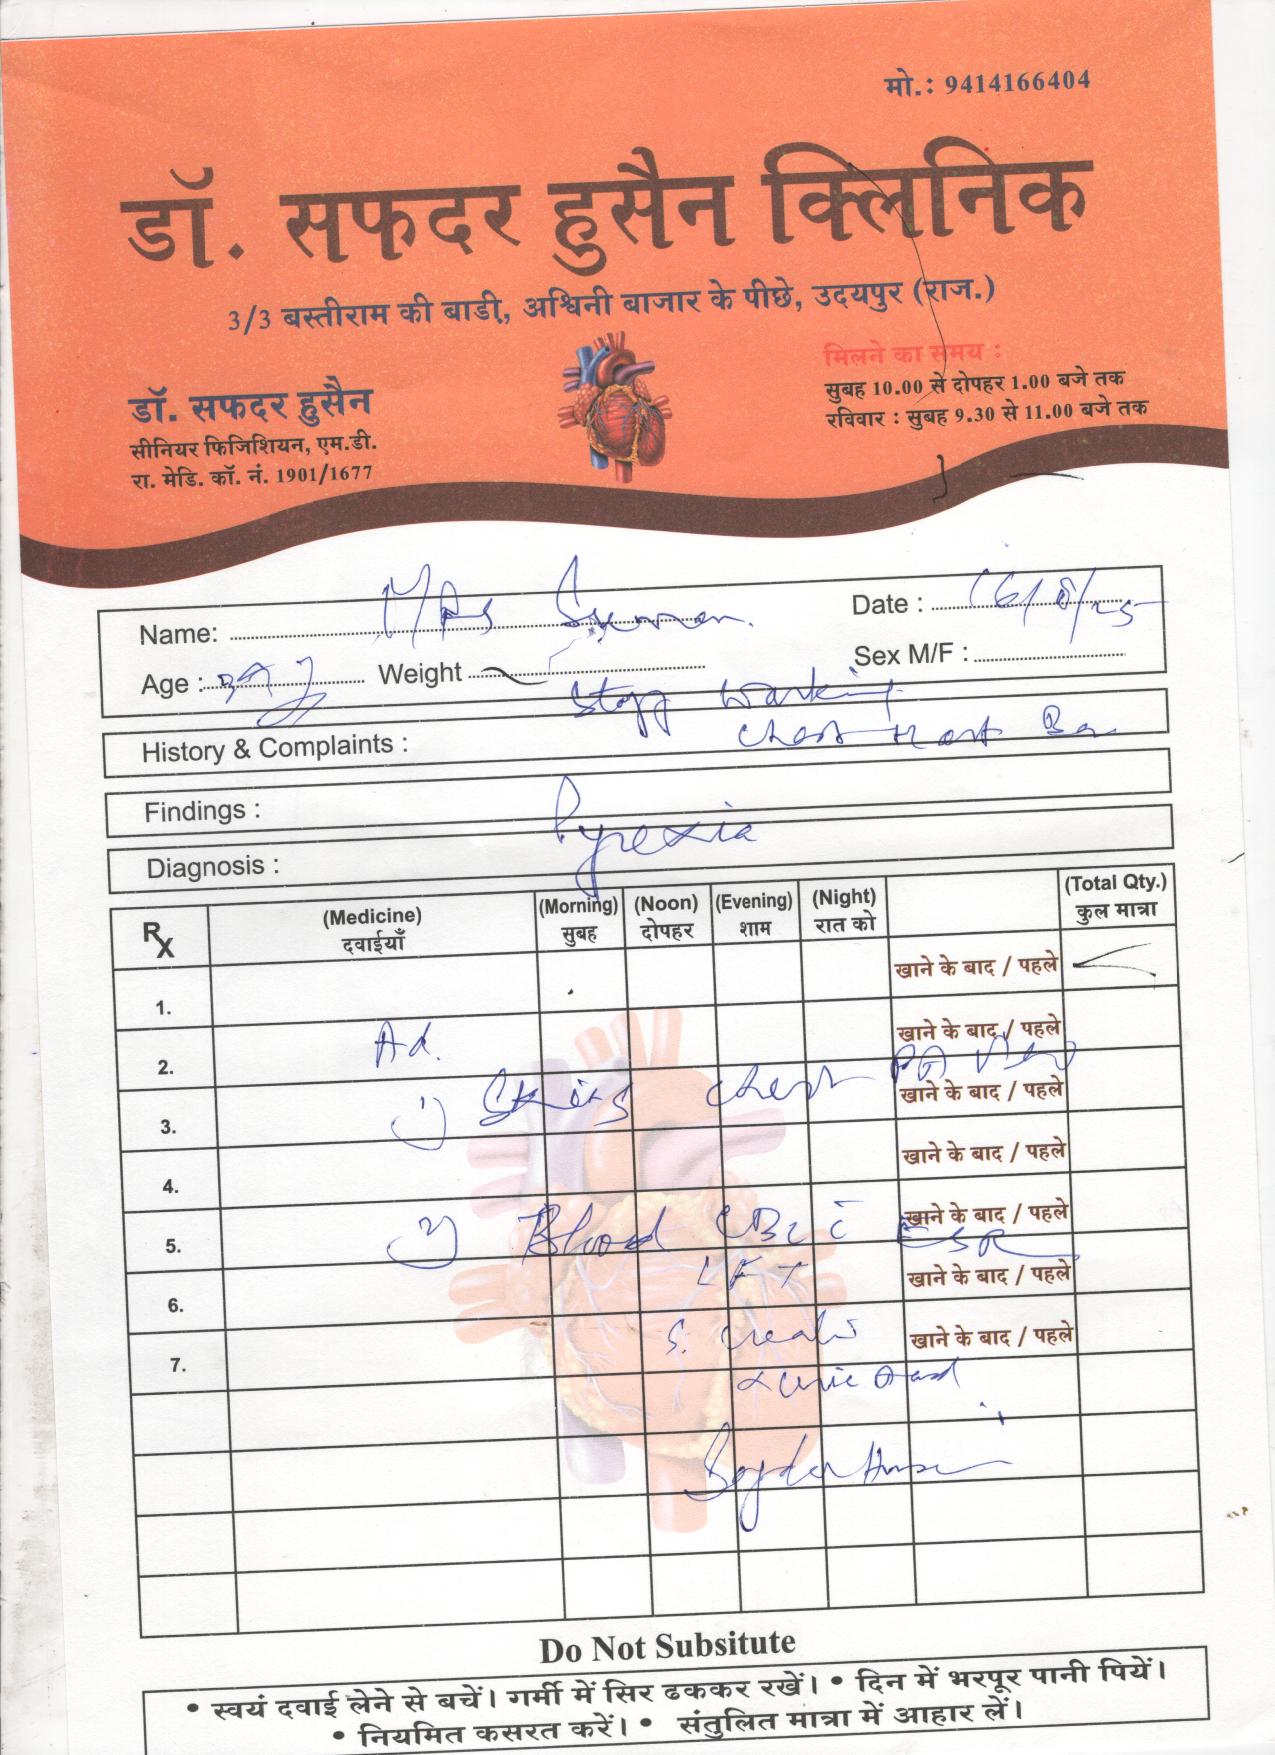 मो.: 9414166404
डॉ. सफदर हुसैन क्लिनिक
3/3 बस्तीराम की बाडी, अश्विनी बाजार के पीछे, उदयपुर (राज.)
डॉ. सफदर हुसैन
सीनियर फिजिशियन, एम.डी.
रा. मेडि. कॉ. नं. 1901/1677
मिलने का समय :
सुबह 10.00 से दोपहर 1.00 बजे तक
रविवार : सुबह 9.30 से 11.00 बजे तक
Name: Mrs Suman
Date : 16/8/25
Age :
Weight
Sex M/F :
Staff working
chest
History & Complaints :
Findings :
Pyrexia
Diagnosis :
Rx (Medicine) (Morning) (Noon) (Evening) (Night) (Total Qty.)
दवाईयाँ सुबह दोपहर शाम रात को कुल मात्रा
1. खाने के बाद / पहले
2. Ad. खाने के बाद / पहले
1) chest PA view
3. खाने के बाद / पहले
4. खाने के बाद / पहले
5. 2) Blood CBC c ESR खाने के बाद / पहले
LFT
6. खाने के बाद / पहले
7. S. खाने के बाद / पहले
Do Not Subsitute
• स्वयं दवाई लेने से बचें। गर्मी में सिर ढककर रखें। • दिन में भरपूर पानी पियें।
• नियमित कसरत करें। • संतुलित मात्रा में आहार लें।